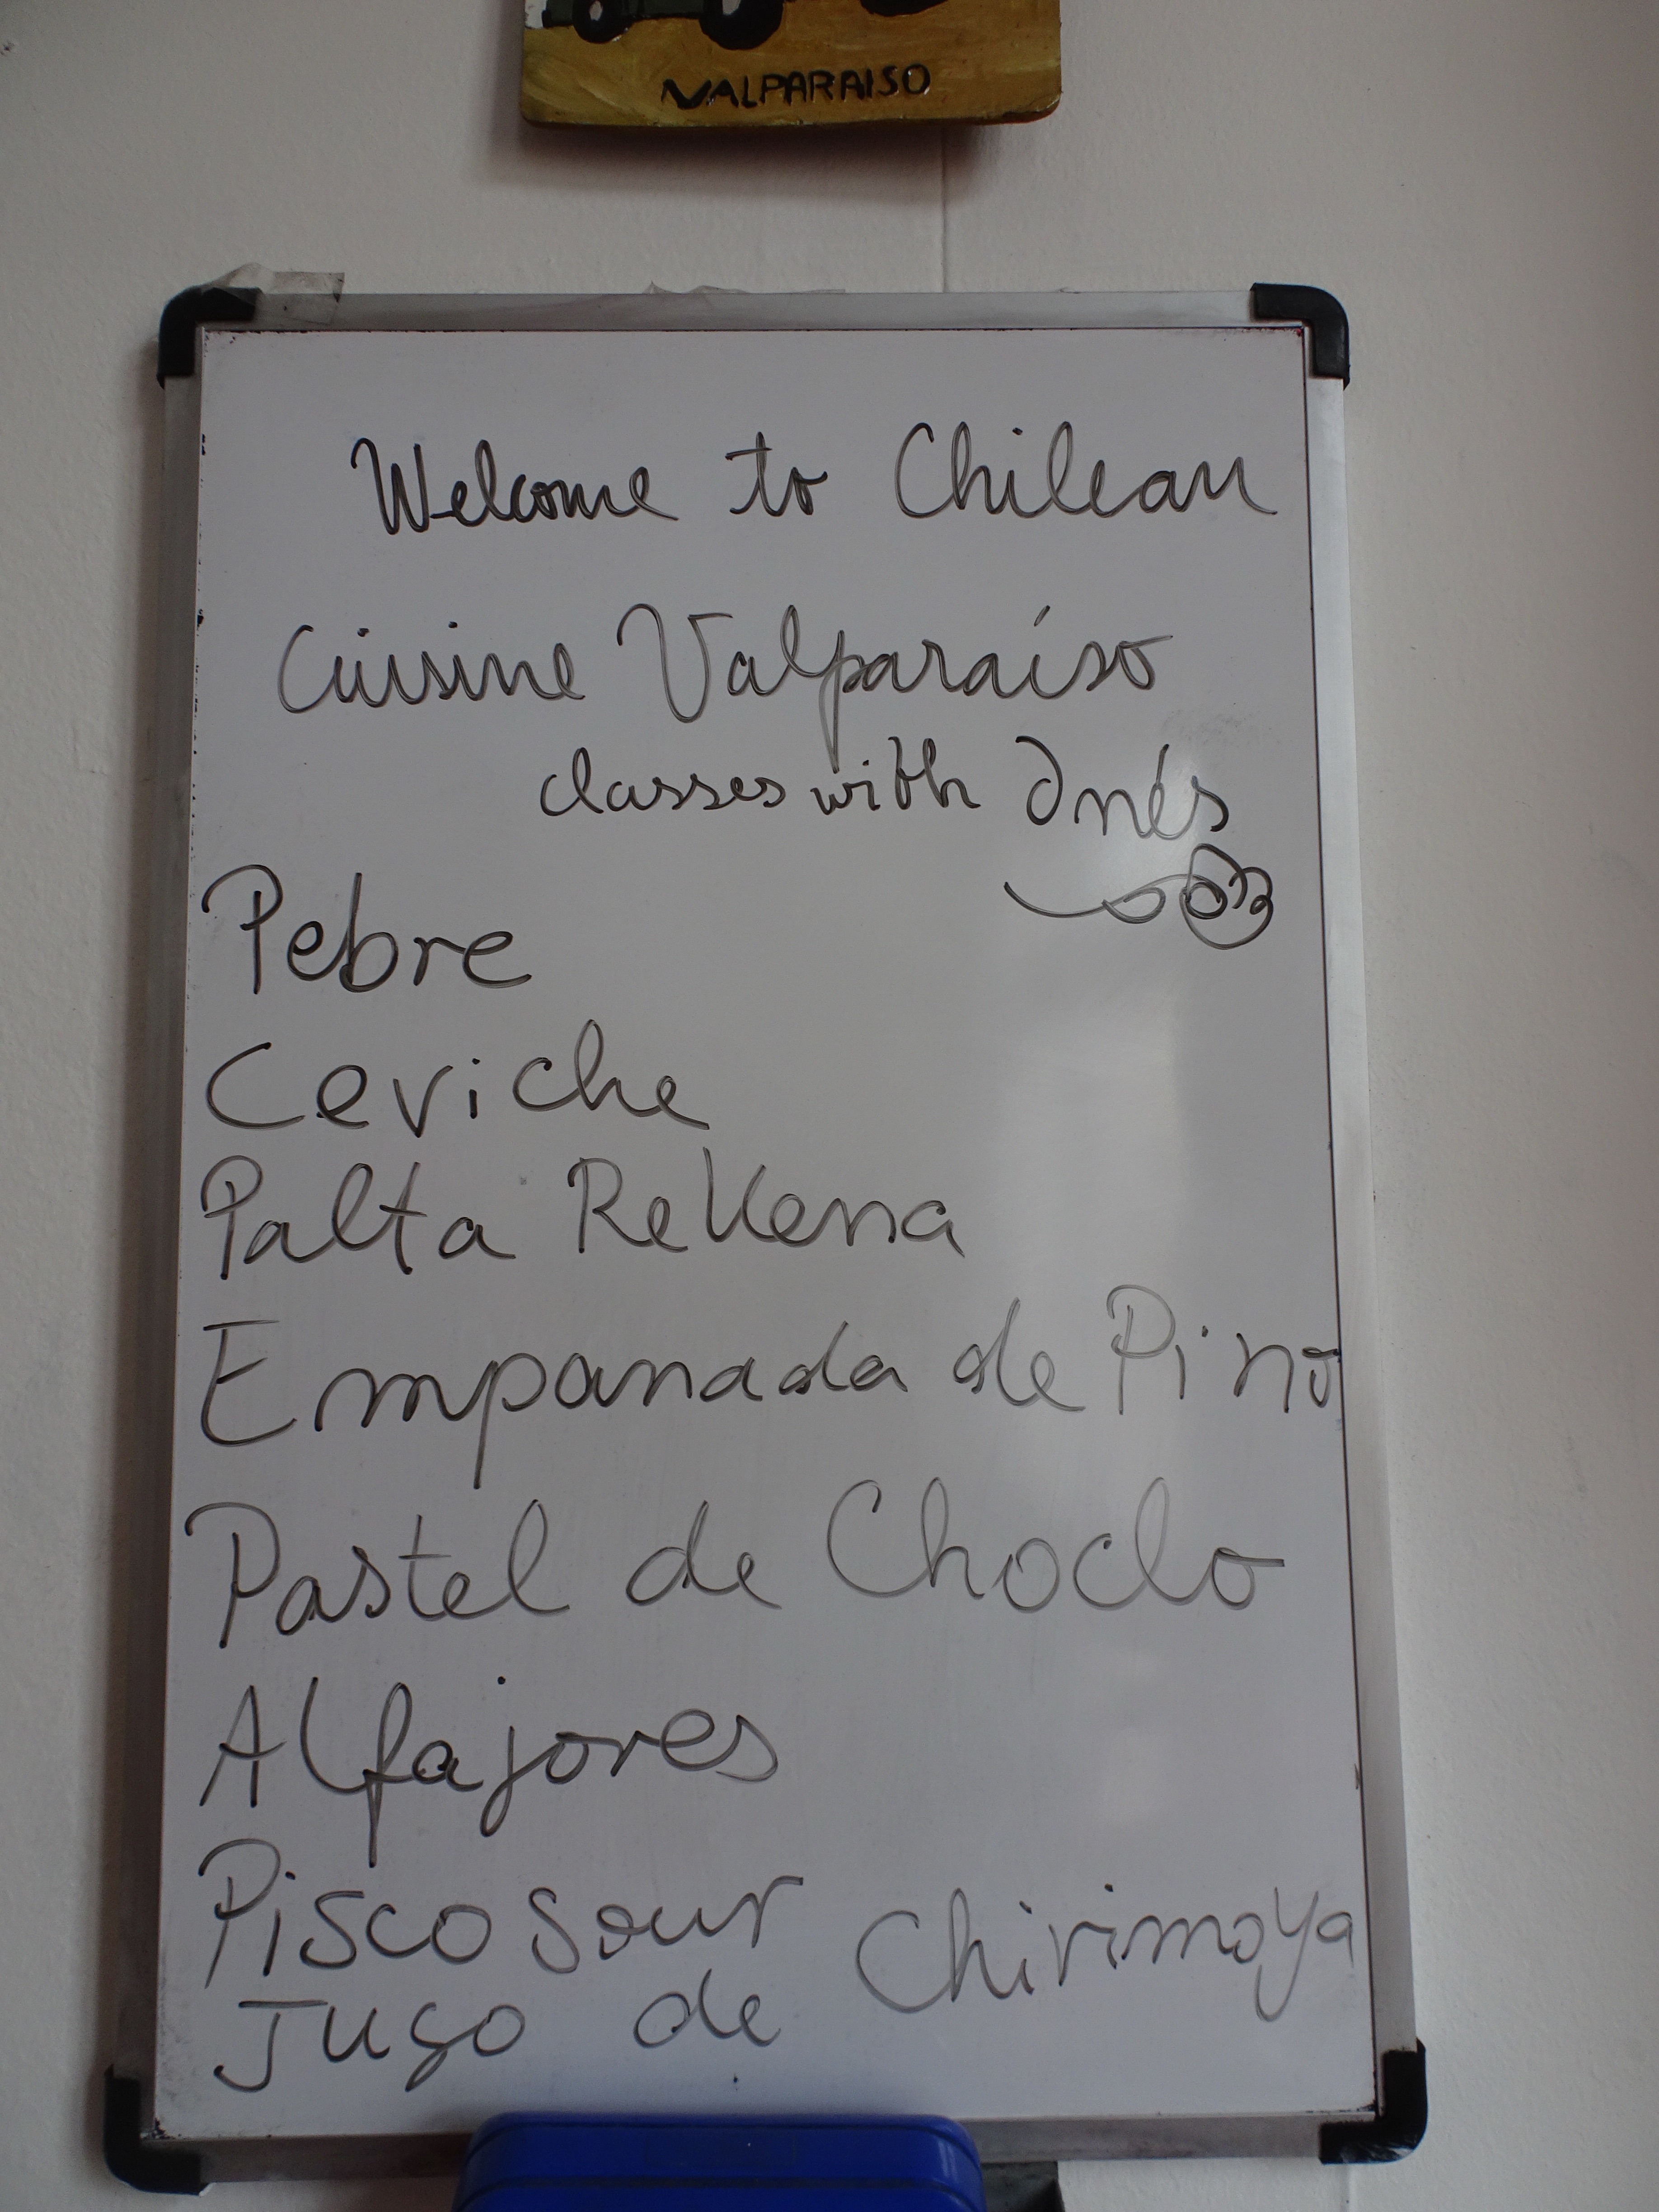 VALPARAISO
Welcome to Chilean
Cuisine Valparaíso
classes with Inés
Pebre
Ceviche
Palta Rellena
Empanada de Pino
Pastel de Choclo
Alfajores
Pisco Sour
Jugo de Chirimoya